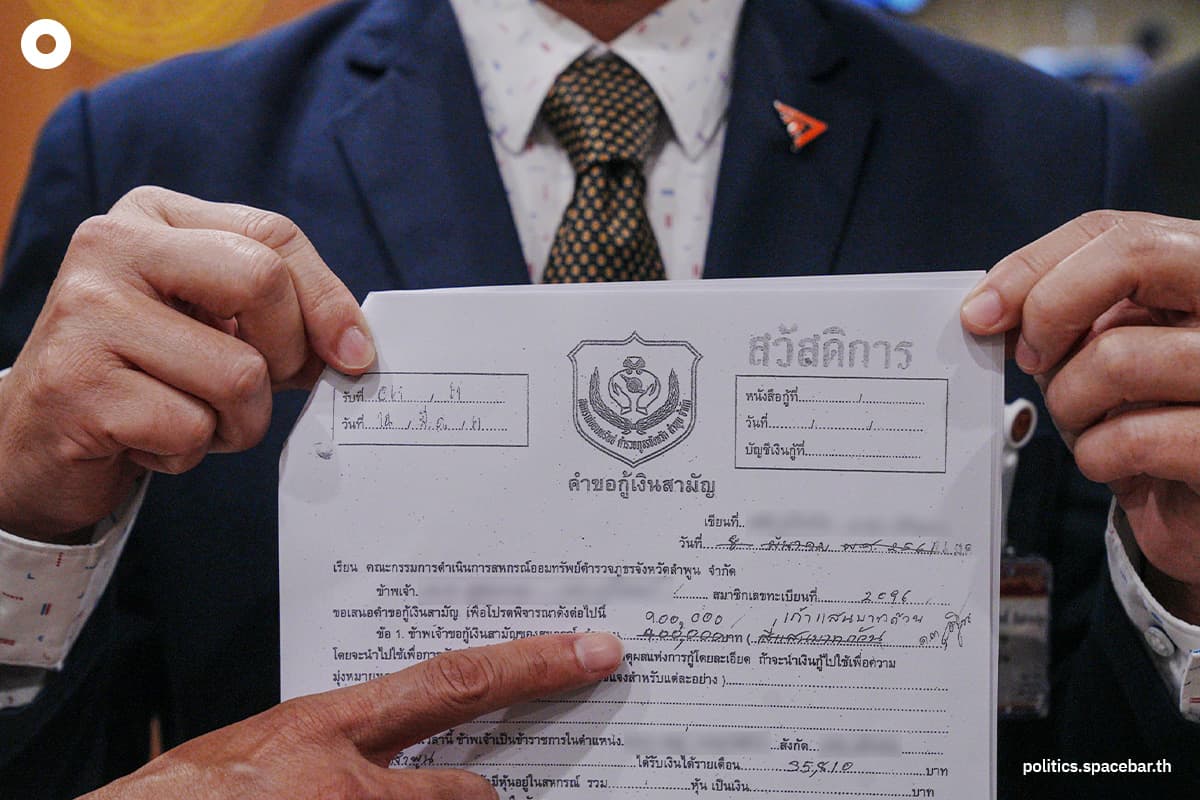 สวัสดิการ
รับที่
วันที่
หนังสือกู้ที่........../..........
วันที่........../........../..........
บัญชีเงินกู้ที่....................
สหกรณ์ออมทรัพย์ ตำรวจภูธรจังหวัด ลำพูน จำกัด
คำขอกู้เงินสามัญ
เขียนที่..
วันที่
เรียน คณะกรรมการดำเนินการสหกรณ์ออมทรัพย์ตำรวจภูธรจังหวัดลำพูน จำกัด
ข้าพเจ้า. สมาชิกเลขทะเบียนที่ 2096
ขอเสนอคำขอกู้เงินสามัญ เพื่อโปรดพิจารณาดังต่อไปนี้ ๙๐๐,๐๐๐ / เก้าแสนบาทถ้วน
ข้อ 1. ข้าพเจ้าขอกู้เงินสามัญของสหกรณ์ บาท (
โดยจะนำไปใช้เพื่อการ ตุผลแห่งการกู้โดยละเอียด ถ้าจะนำเงินกู้ไปใช้เพื่อความ
มุ่งหมาย แจงสำหรับแต่ละอย่าง )
เวลานี้ ข้าพเจ้าเป็นข้าราชการในตำแหน่ง. ...สังกัด...
ลำพูน ได้รับเงินได้รายเดือน 35,810 บาท
มีหุ้นอยู่ในสหกรณ์ รวม หุ้น เป็นเงิน บาท
politics.spacebar.th